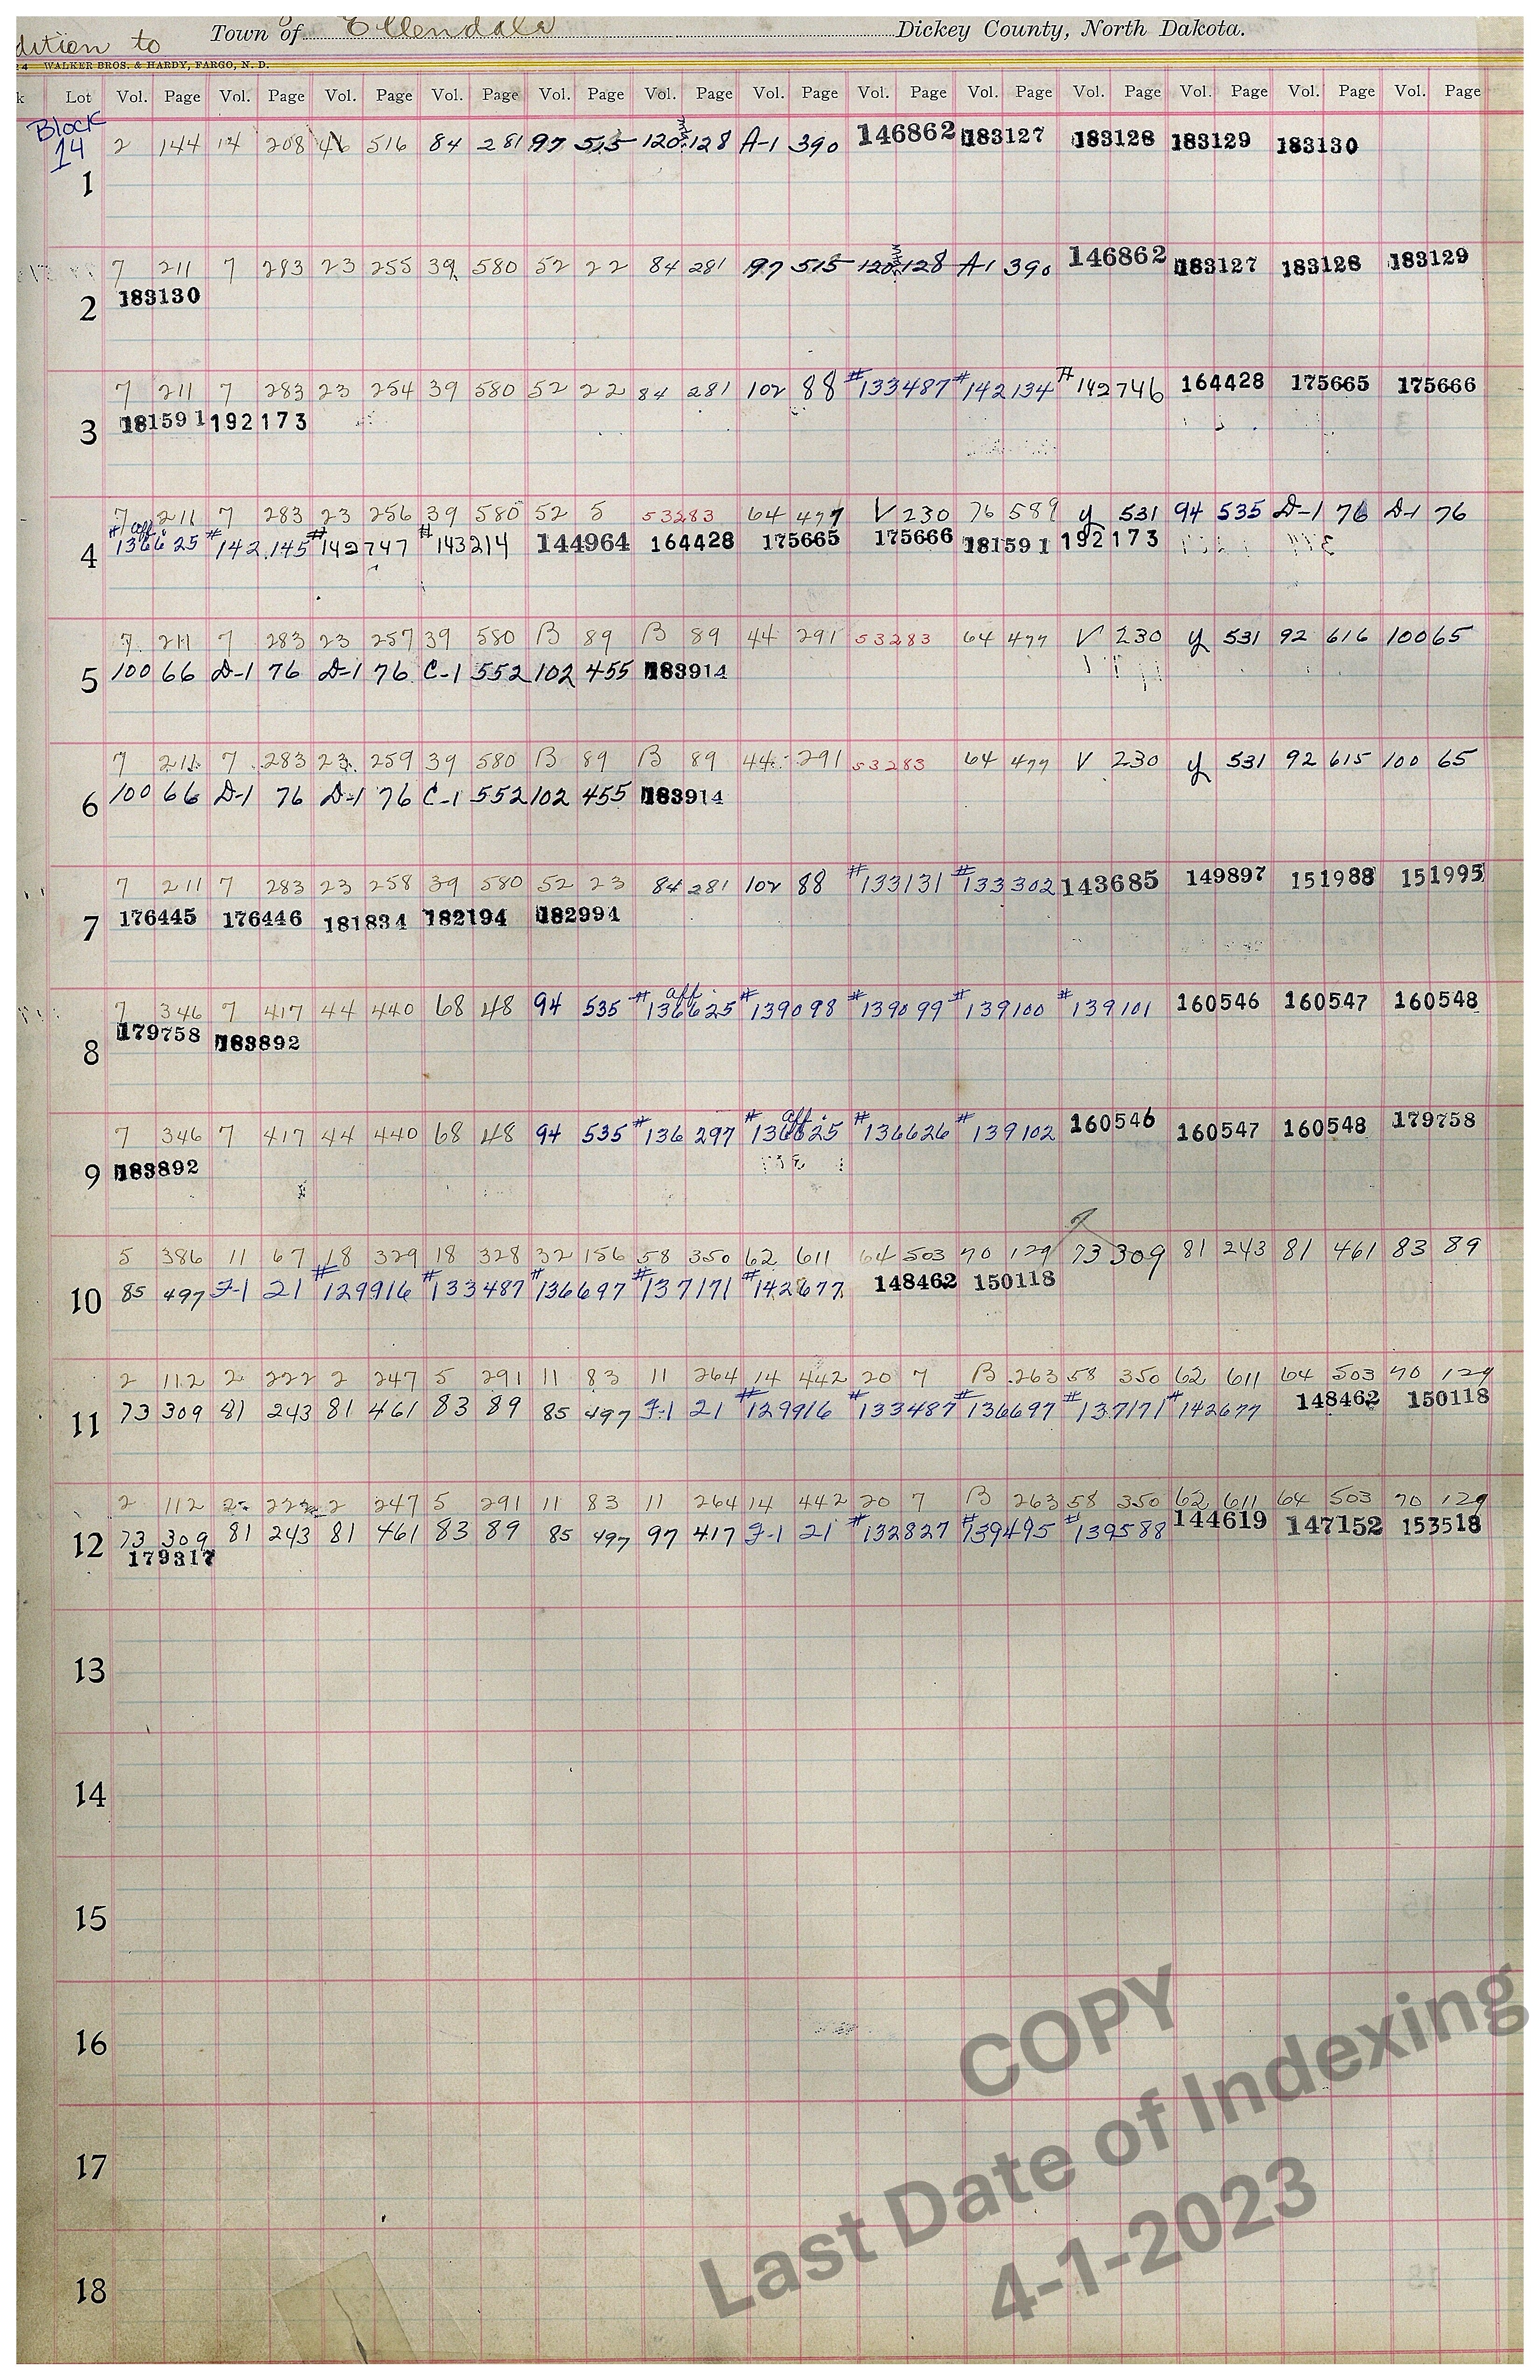 dition to Town of Ellendale Dickey County, North Dakota.
24 WALKER BROS. & HARDY, FARGO, N. D.
k Lot Vol. Page Vol. Page Vol. Page Vol. Page Vol. Page Vol. Page Vol. Page Vol. Page Vol. Page Vol. Page Vol. Page Vol. Page Vol. Page
Block
14 2 144 14 208 516 84 281 97 515 120 128 A-1 390 146862 183127 183128 183129 183130
1
7 211 7 283 23 255 39 580 52 22 84 281 97 515 120 128 A-1 390 146862 183127 183128 183129
2 183130
7 211 7 283 23 254 39 580 52 22 84 281 102 88 #133487 #142134 #142746 164428 175665 175666
3 181591 192173
7 211 7 283 23 256 39 580 52 5 53283 64 477 V 230 76 589 y 531 94 535 D-1 76 D-1 76
4 #136625 aff. #142145 #142747 #143214 144964 164428 175665 175666 181591 192173
7 211 7 283 23 257 39 580 B 89 B 89 44 291 53283 64 477 V 230 y 531 92 616 100 65
5 100 66 D-1 76 D-1 76 C-1 552 102 455 183914
7 211 7 283 23 259 39 580 B 89 B 89 44 291 53283 64 477 V 230 y 531 92 615 100 65
6 100 66 D-1 76 D-1 76 C-1 552 102 455 183914
7 211 7 283 23 258 39 580 52 23 84 281 102 88 #133131 #133302 143685 149897 151988 151995
7 176445 176446 181834 182194 182994
7 346 7 417 44 440 68 48 94 535 #136625 aff. #139098 #139099 #139100 #139101 160546 160547 160548
8 179758 183892
7 346 7 417 44 440 68 48 94 535 #136297 #136625 aff. #136626 #139102 160546 160547 160548 179758
9 183892
5 386 11 67 18 329 18 328 32 156 58 350 62 611 64 503 70 129 73 309 81 243 81 461 83 89
10 85 497 F-1 21 #129916 #133487 #136697 #137171 #142677 148462 150118
2 112 2 222 2 247 5 291 11 83 11 264 14 442 20 7 B 263 58 350 62 611 64 503 70 129
11 73 309 81 243 81 461 83 89 85 497 F-1 21 #129916 #133487 #136697 #137171 #142677 148462 150118
2 112 2 222 2 247 5 291 11 83 11 264 14 442 20 7 B 263 58 350 62 611 64 503 70 129
12 73 309 81 243 81 461 83 89 85 497 97 417 F-1 21 #132827 #139495 #139588 144619 147152 153518
179317
13
14
15
16
17
18
COPY
Last Date of Indexing
4-1-2023